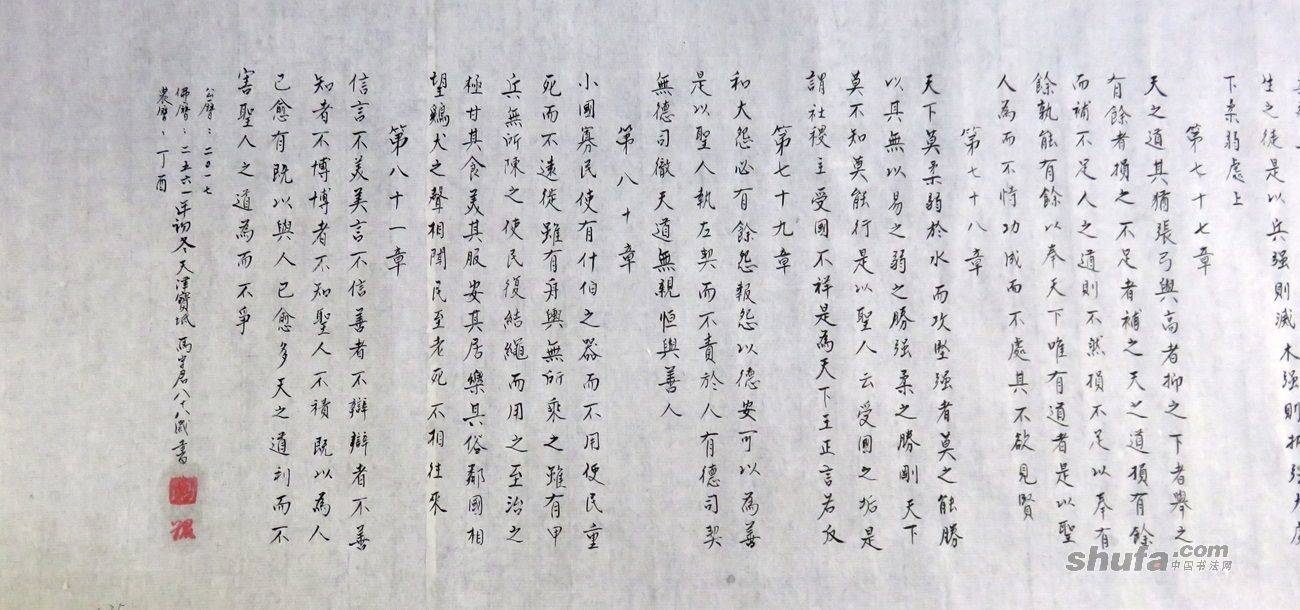 生之徒是以兵强則滅木强則折强大處
下柔弱處上
第七十七章
天之道其猶張弓與高者抑之下者舉之
有餘者損之不足者補之天之道損有餘
而補不足人之道則不然損不足以奉有
餘孰能有餘以奉天下唯有道者是以聖
人為而不恃功成而不處其不欲見賢
第七十八章
天下莫柔弱於水而攻堅强者莫之能勝
以其無以易之弱之勝强柔之勝剛天下
莫不知莫能行是以聖人云受國之垢是
謂社稷主受國不祥是為天下王正言若反
第七十九章
和大怨必有餘怨報怨以德安可以為善
是以聖人執左契而不責於人有德司契
無德司徹天道無親恒與善人
第八十章
小國寡民使有什伯之器而不用使民重
死而不遠徙雖有舟輿無所乘之雖有甲
兵無所陳之使民復結繩而用之至治之
極甘其食美其服安其居樂其俗鄰國相
望鷄犬之聲相聞民至老死不相往來
第八十一章
信言不美美言不信善者不辯辯者不善
知者不博博者不知聖人不積既以為人
己愈有既以與人己愈多天之道利而不
害聖人之道為而不爭
公曆：二0一七
佛曆：二五六一年初冬天津寶坻馬君八十八歲書
農曆：丁酉
shufa.com
中国书法网